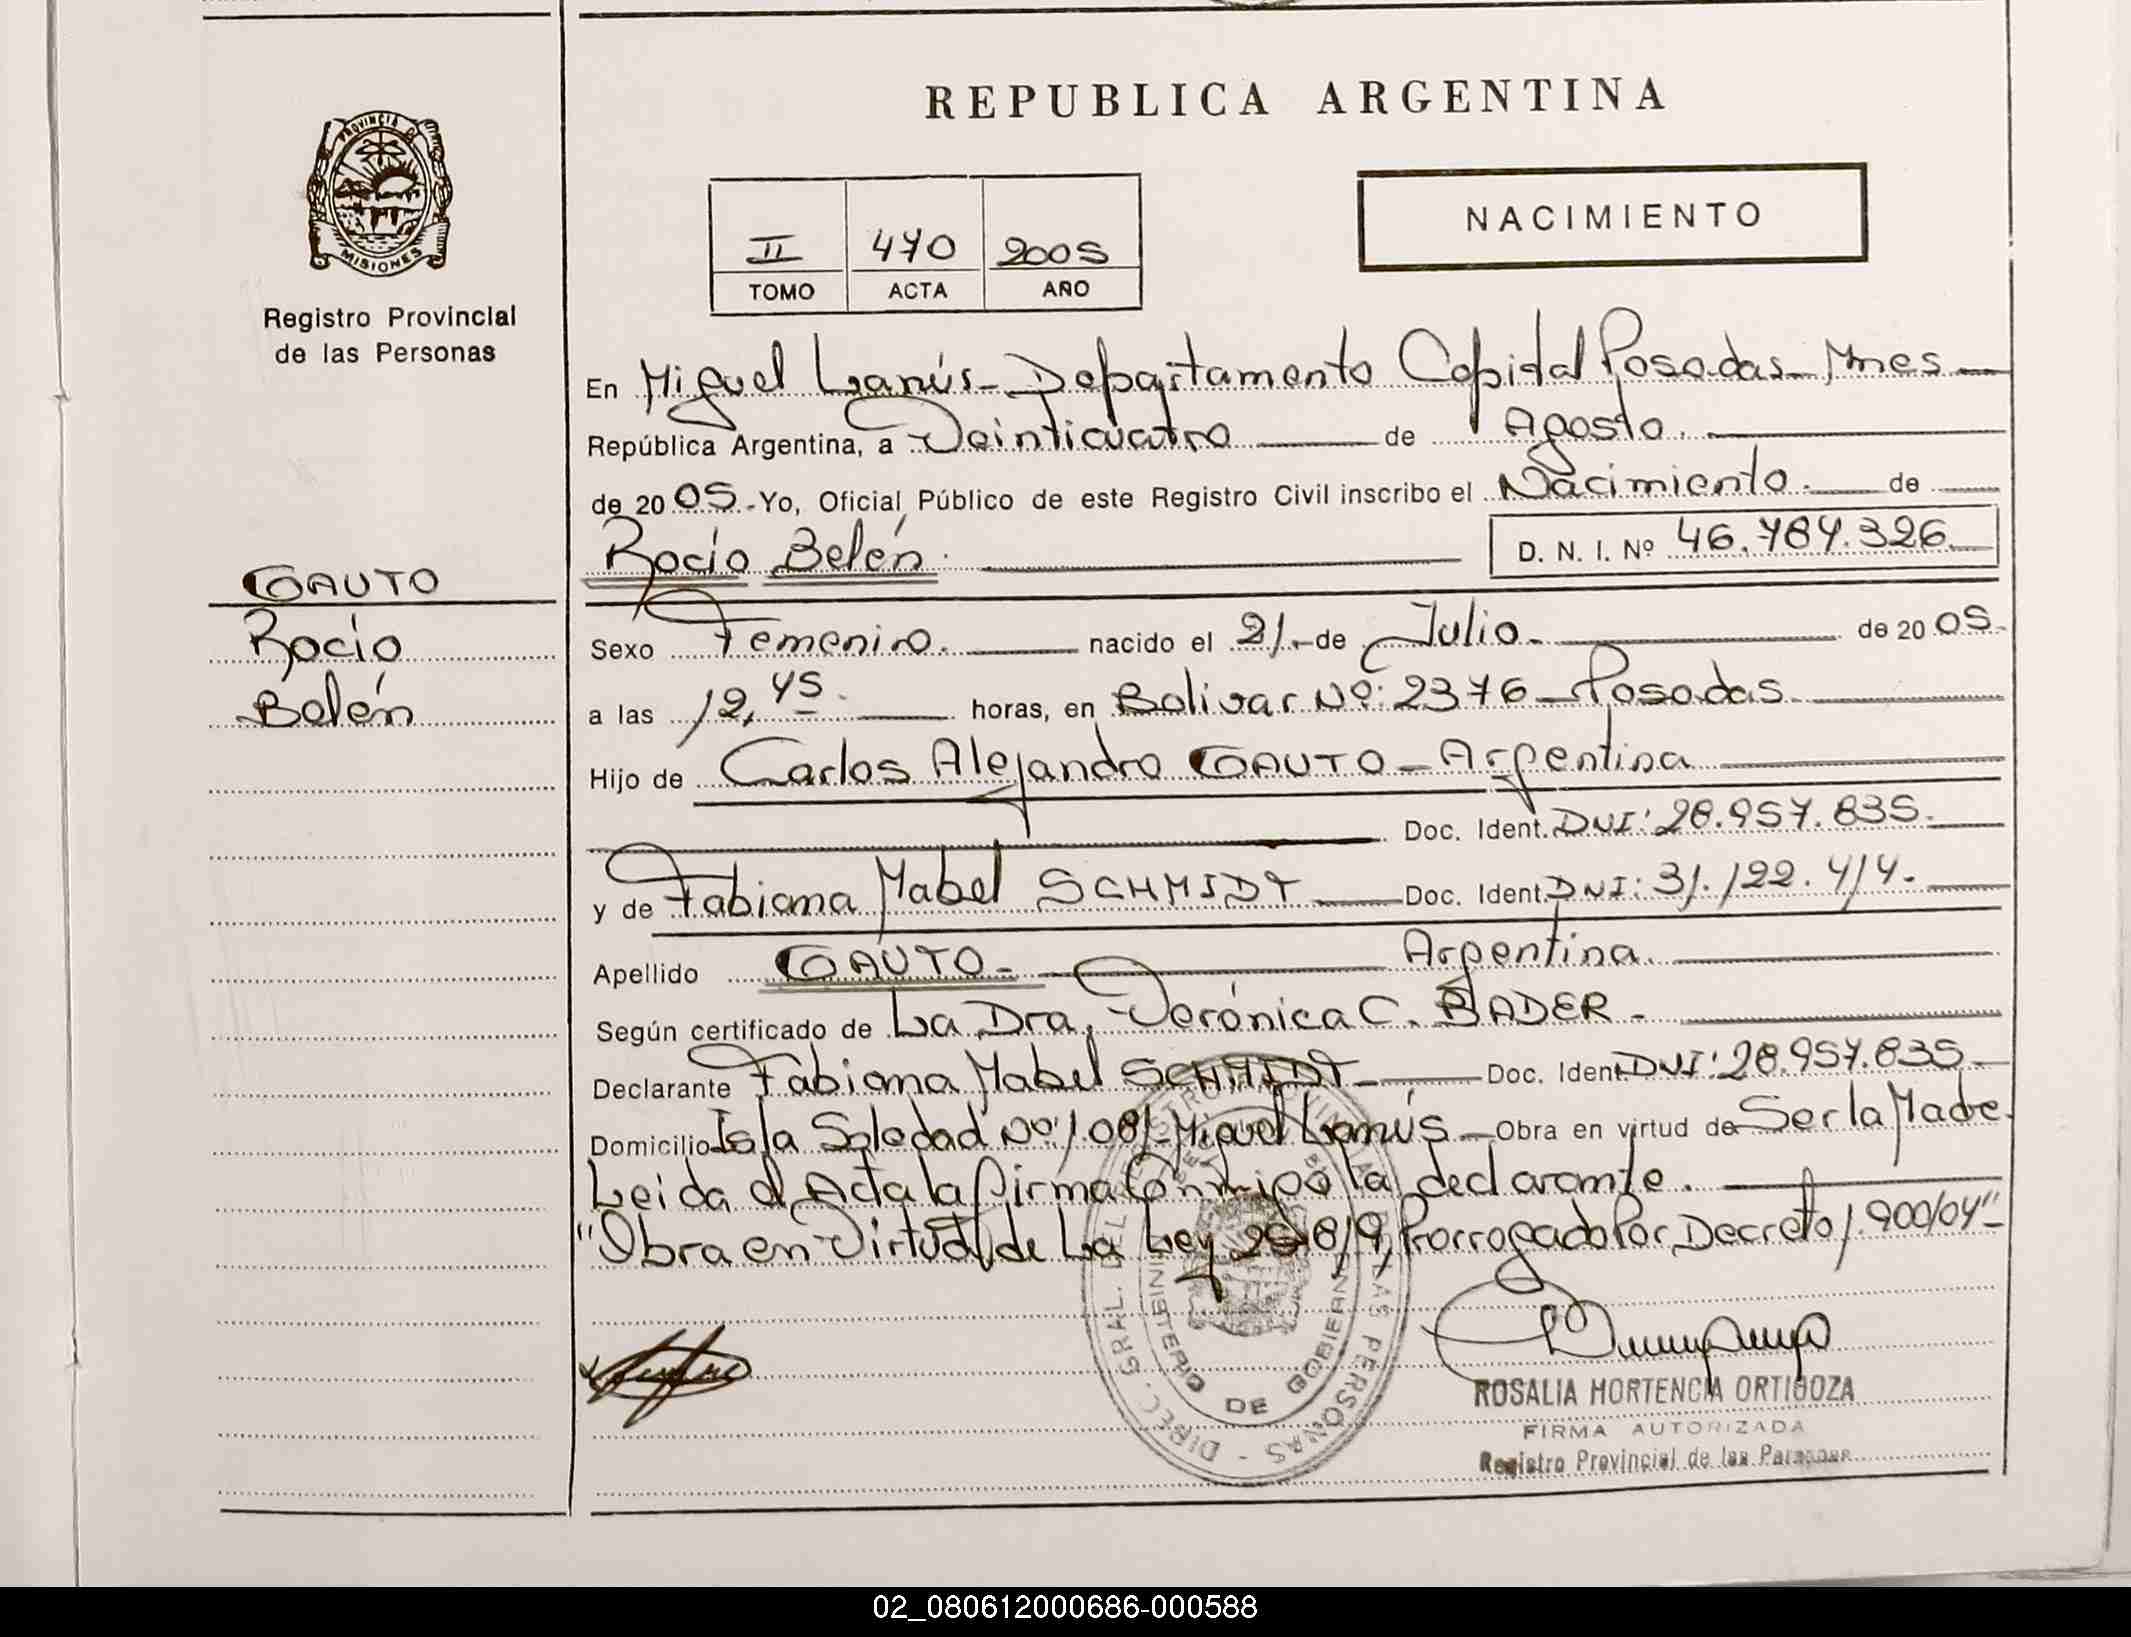 REPUBLICA ARGENTINA
PROVINCIA DE
MISIONES
Registro Provincial
de las Personas
II 470 2005
TOMO ACTA AÑO
NACIMIENTO
En Miguel Lanús - Departamento Capital Posadas - Mnes
República Argentina, a Veinticuatro de Agosto.
de 2005 - Yo, Oficial Público de este Registro Civil inscribo el Nacimiento. de
Rocío Belén. D. N. I. Nº 46.784.326
GAUTO
Rocío
Belén
Sexo Femenino. nacido el 21 - de Julio. de 2005.
a las 12,45. horas, en Bolivar Nº: 2376 - Posadas.
Hijo de Carlos Alejandro GAUTO - Argentina
Doc. Ident. DNI: 28.957.835.
y de Fabiana Mabel SCHMIDT Doc. Ident. DNI: 31.122.414.
Apellido GAUTO - Argentina.
Según certificado de La Dra. Verónica C. BADER -
Declarante Fabiana Mabel SCHMIDT - Doc. Ident. DNI: 28.957.835
Domicilio Isla Soledad Nº 1.081 - Miguel Lanús - Obra en virtud de Ser la Madre.
Leida el Acta la firma Conmigo la declarante.
"Obra en Virtud de La Ley 25819, Prorrogado Por Decreto 1.900/04" -
DIREC. GRAL. DEL REGISTRO PROVINCIAL DE LAS PERSONAS
MINISTERIO DE GOBIERNO
ROSALIA HORTENCIA ORTIGOZA
FIRMA AUTORIZADA
Registro Provincial de las Personas
02_080612000686-000588